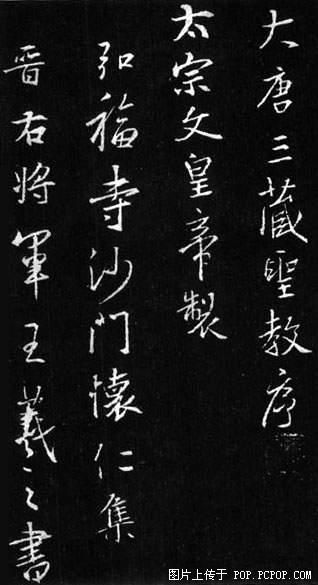 大唐三藏聖教序
太宗文皇帝製
弘福寺沙門懷仁集
晉右將軍王羲之書
图片上传于 POP.PCPOP.COM